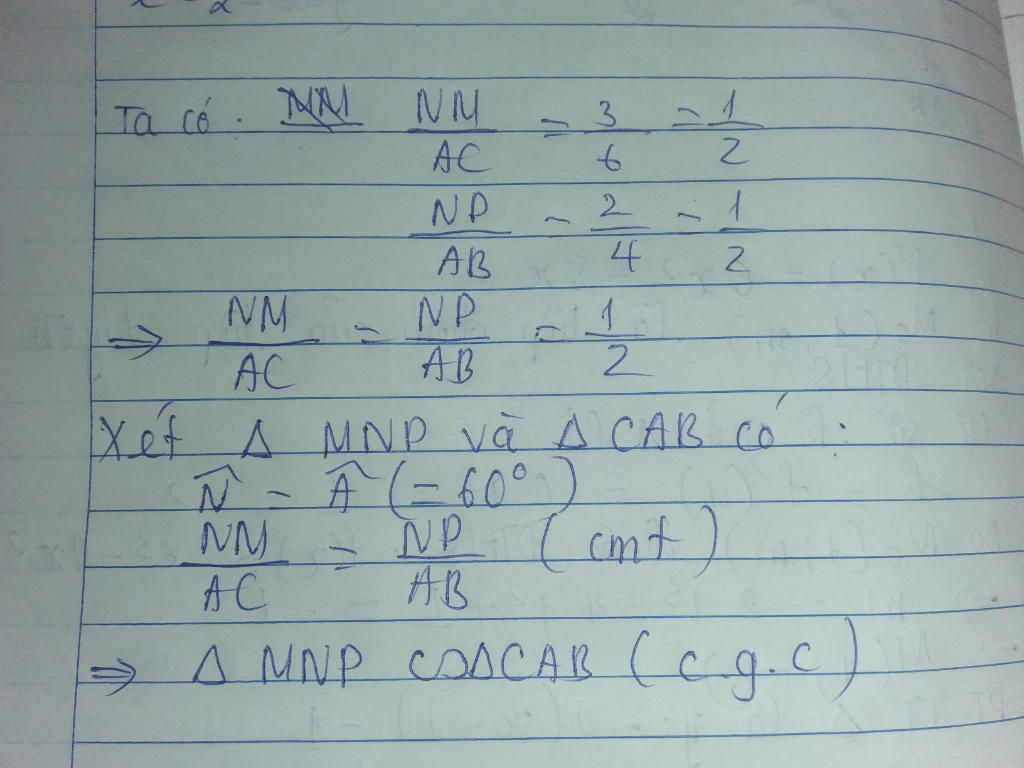 Ta có . NM/AC = 3/6 = 1/2
NP/AB = 2/4 = 1/2
⇒ NM/AC = NP/AB = 1/2
Xét Δ MNP và Δ CAB có :
N̂ = Â (= 60°)
NM/AC = NP/AB (cmt)
⇒ Δ MNP ∽ ΔCAB (c.g.c)